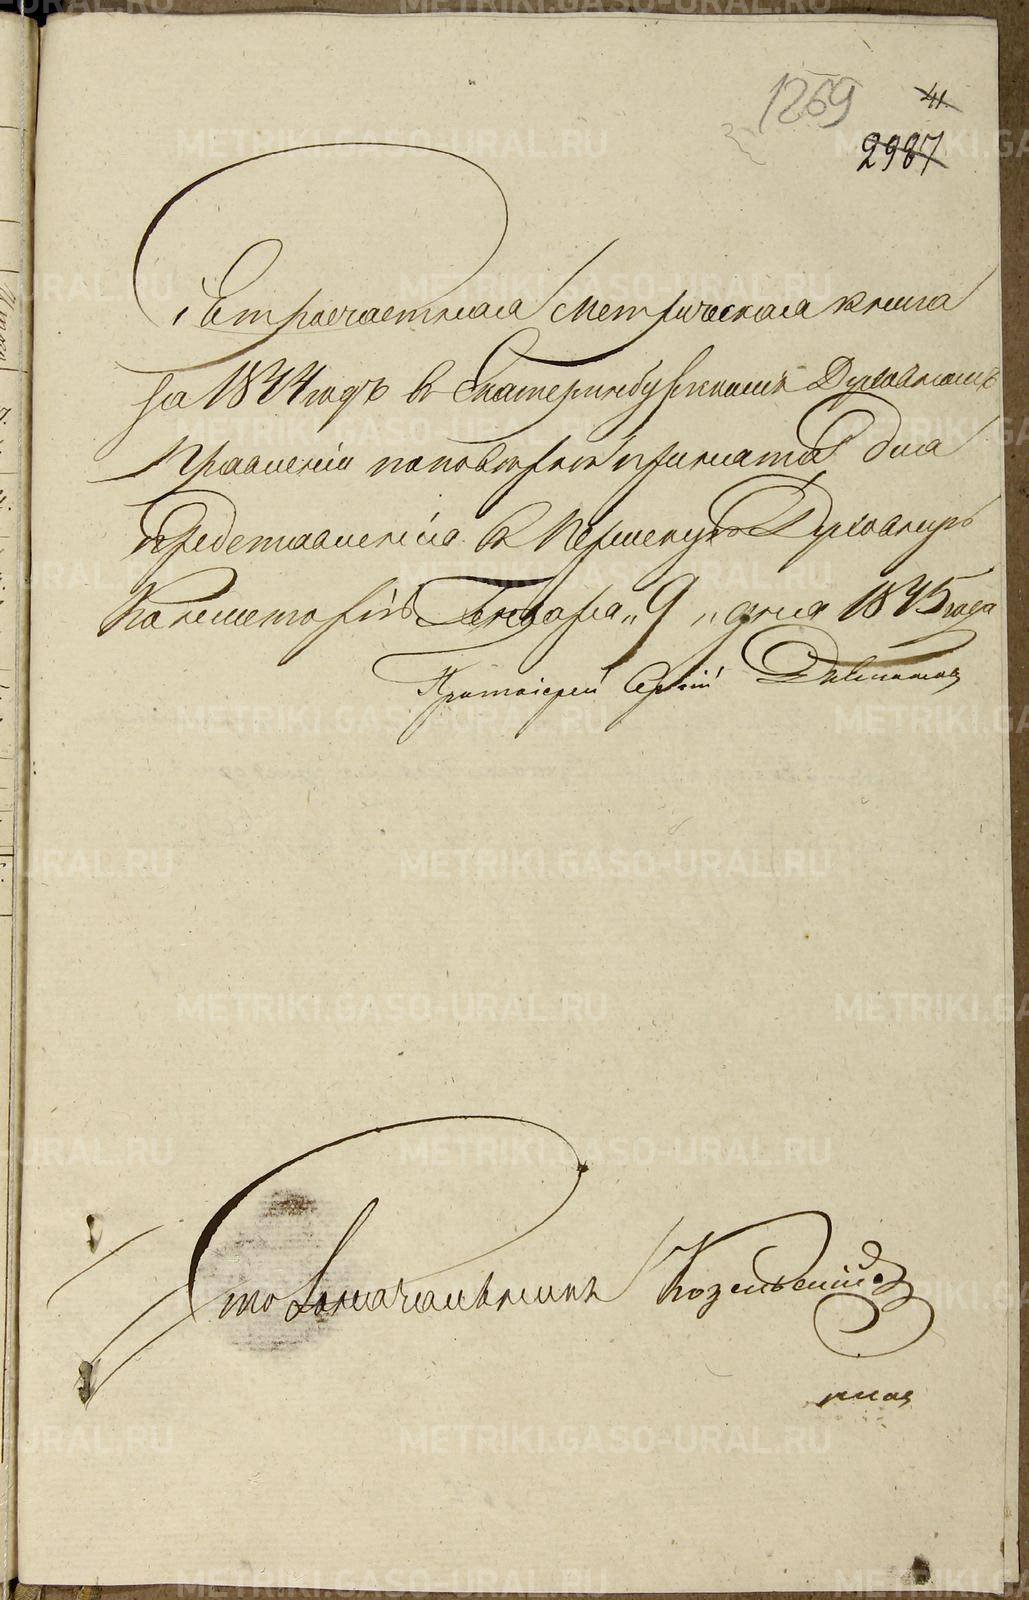 1269
41.
2987
Сія троечастная Метрическая книга
за 1844 годъ в Екатеринбургскомъ Духовномъ
Правленіи по повѣркѣ принята для
представленія в Пермскую Духовную
Консисторію Генваря „9„ дня 1845 года
Протоіерей Сергій
Столоначальникъ Козельскій
METRIKI.GASO-URAL.RU